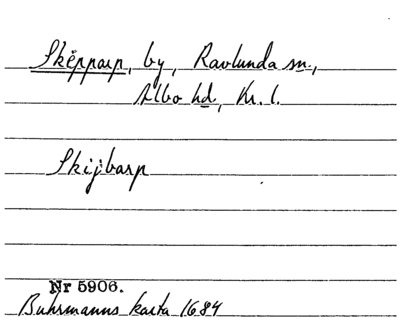 Skepparp, by, Ravlunda sn.,
Albo hd, Kr. l.
Skijbarp
Nr 5906.
Buhrmanns karta 1684